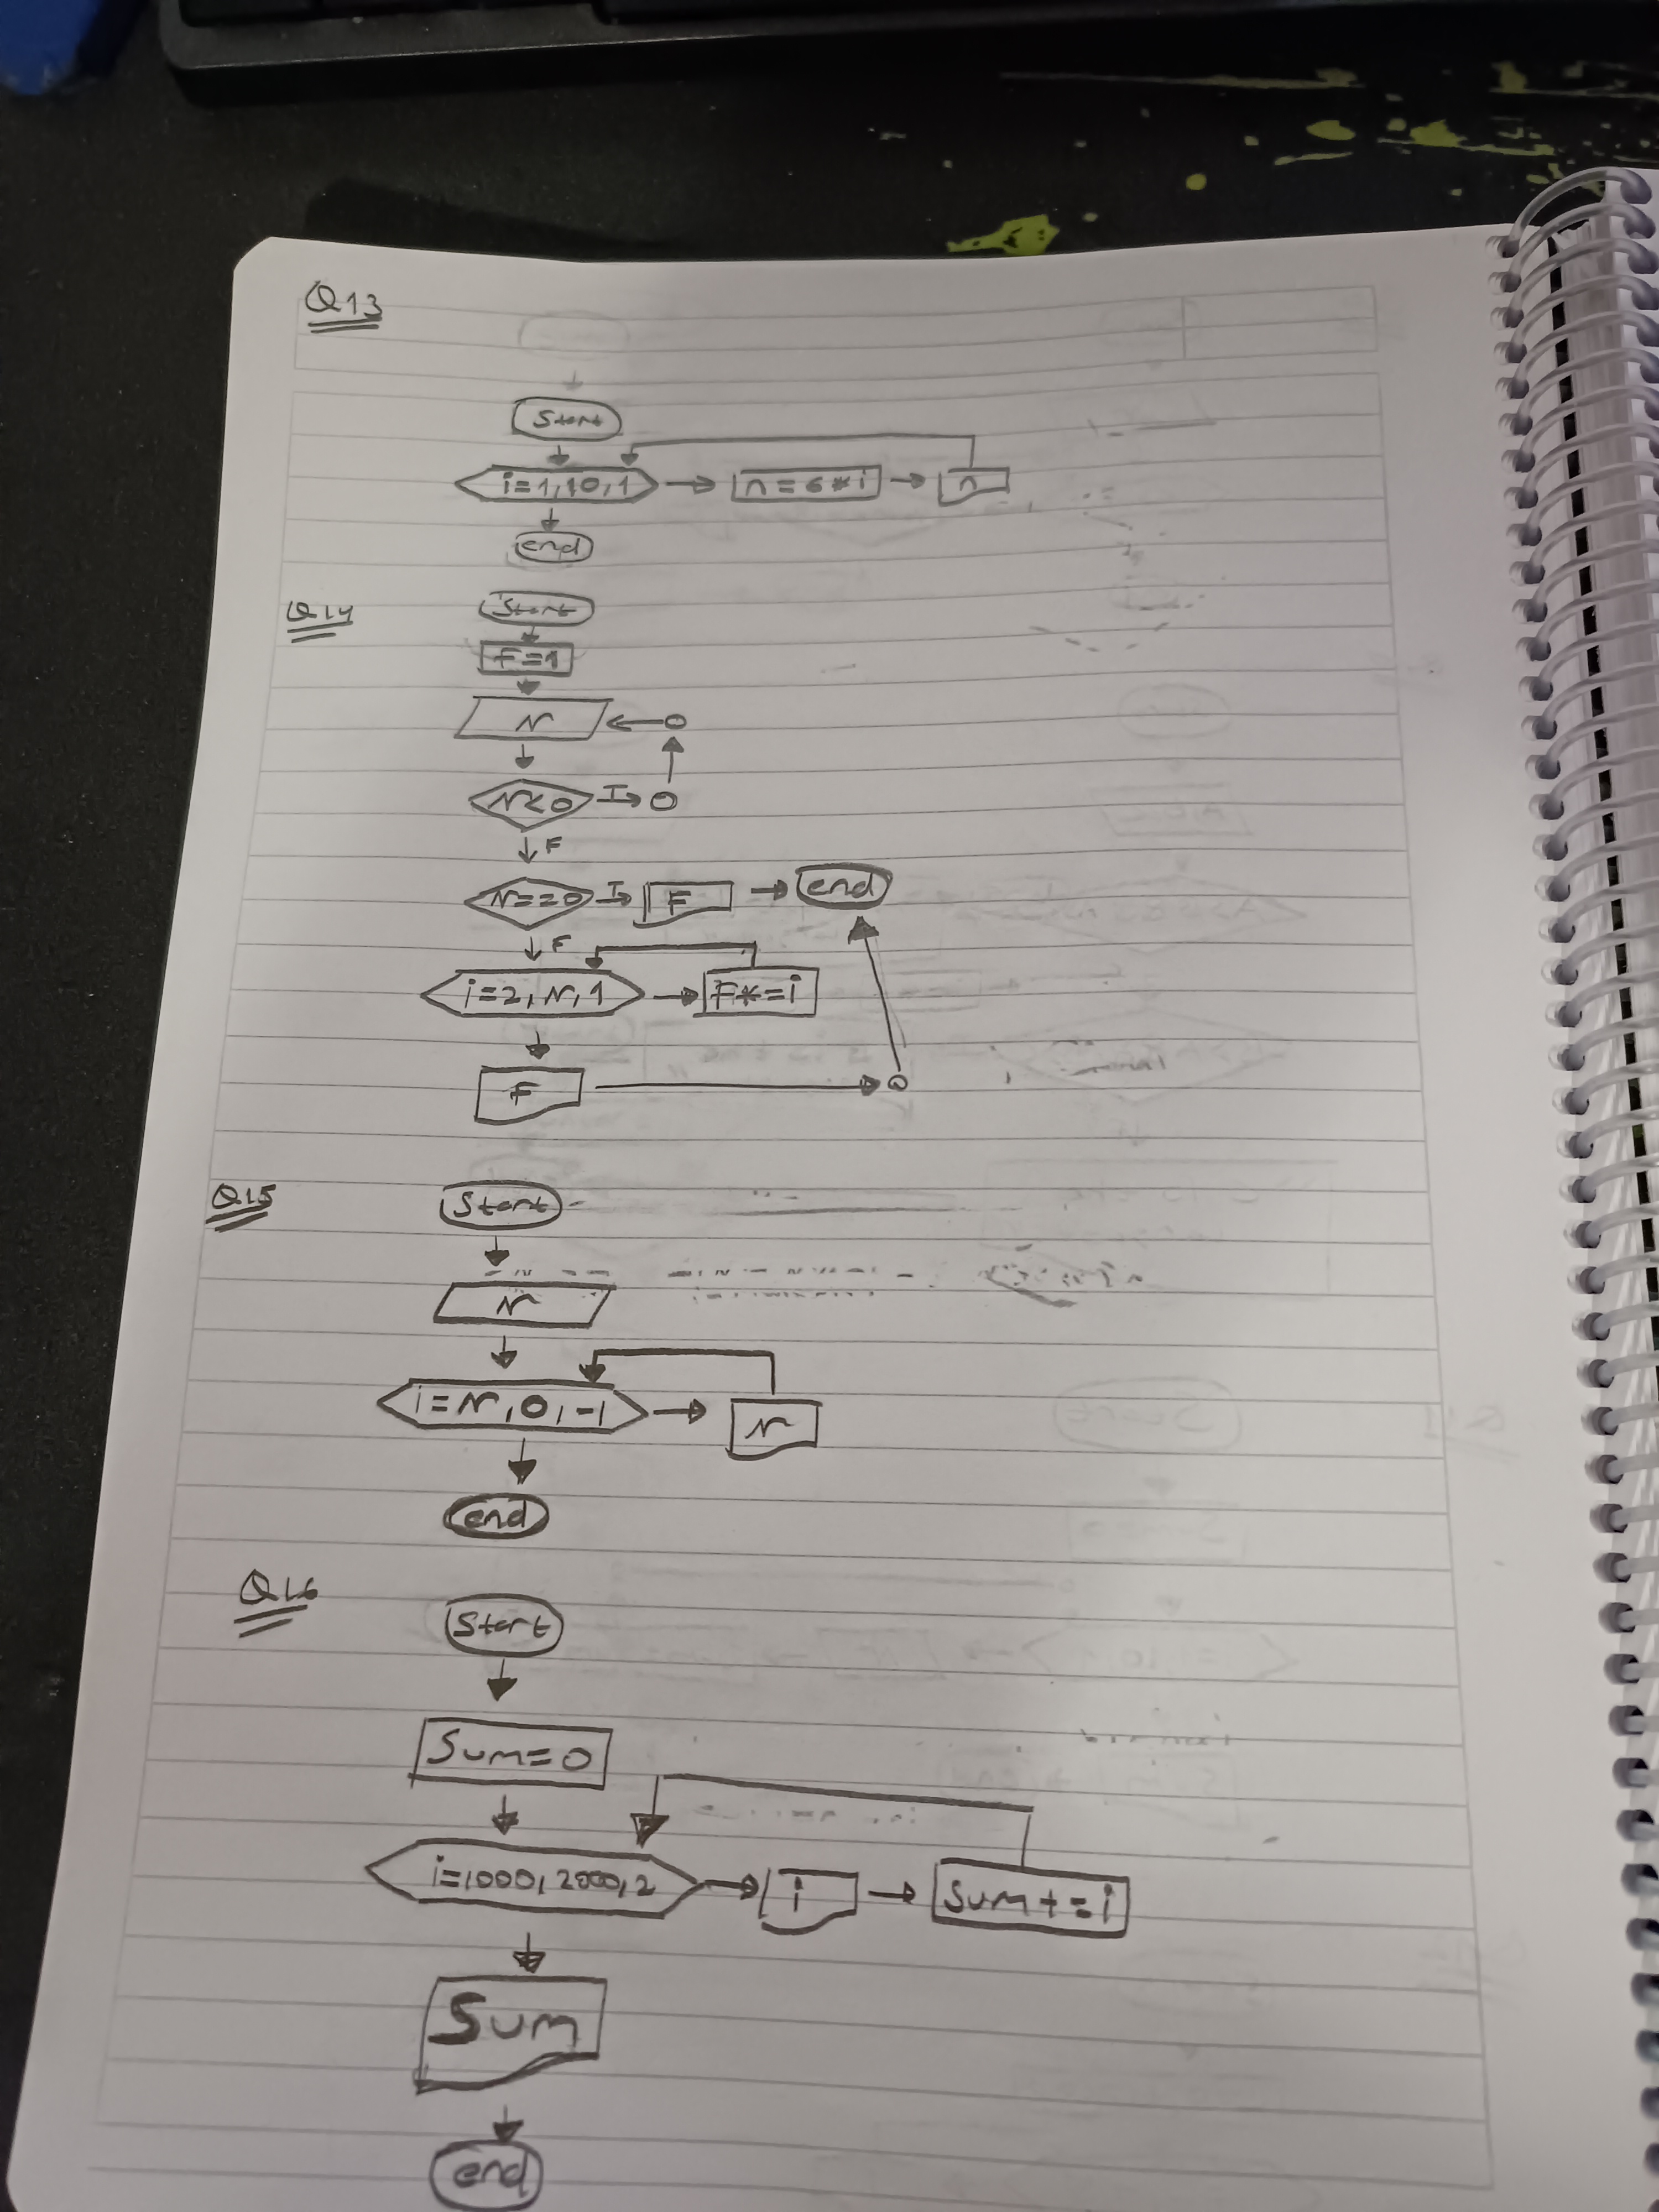 Q13
Start
i=1,10,1 n=6*i n
end
Q14
Start
F=1
N
N<0 T
F
N==0 T F end
F
i=2,N,1 F*=i
F
Q15
Start
N
i=N,0,-1 N
end
Q16
Start
Sum=0
i=1000,2000,2 i Sum+=i
Sum
end